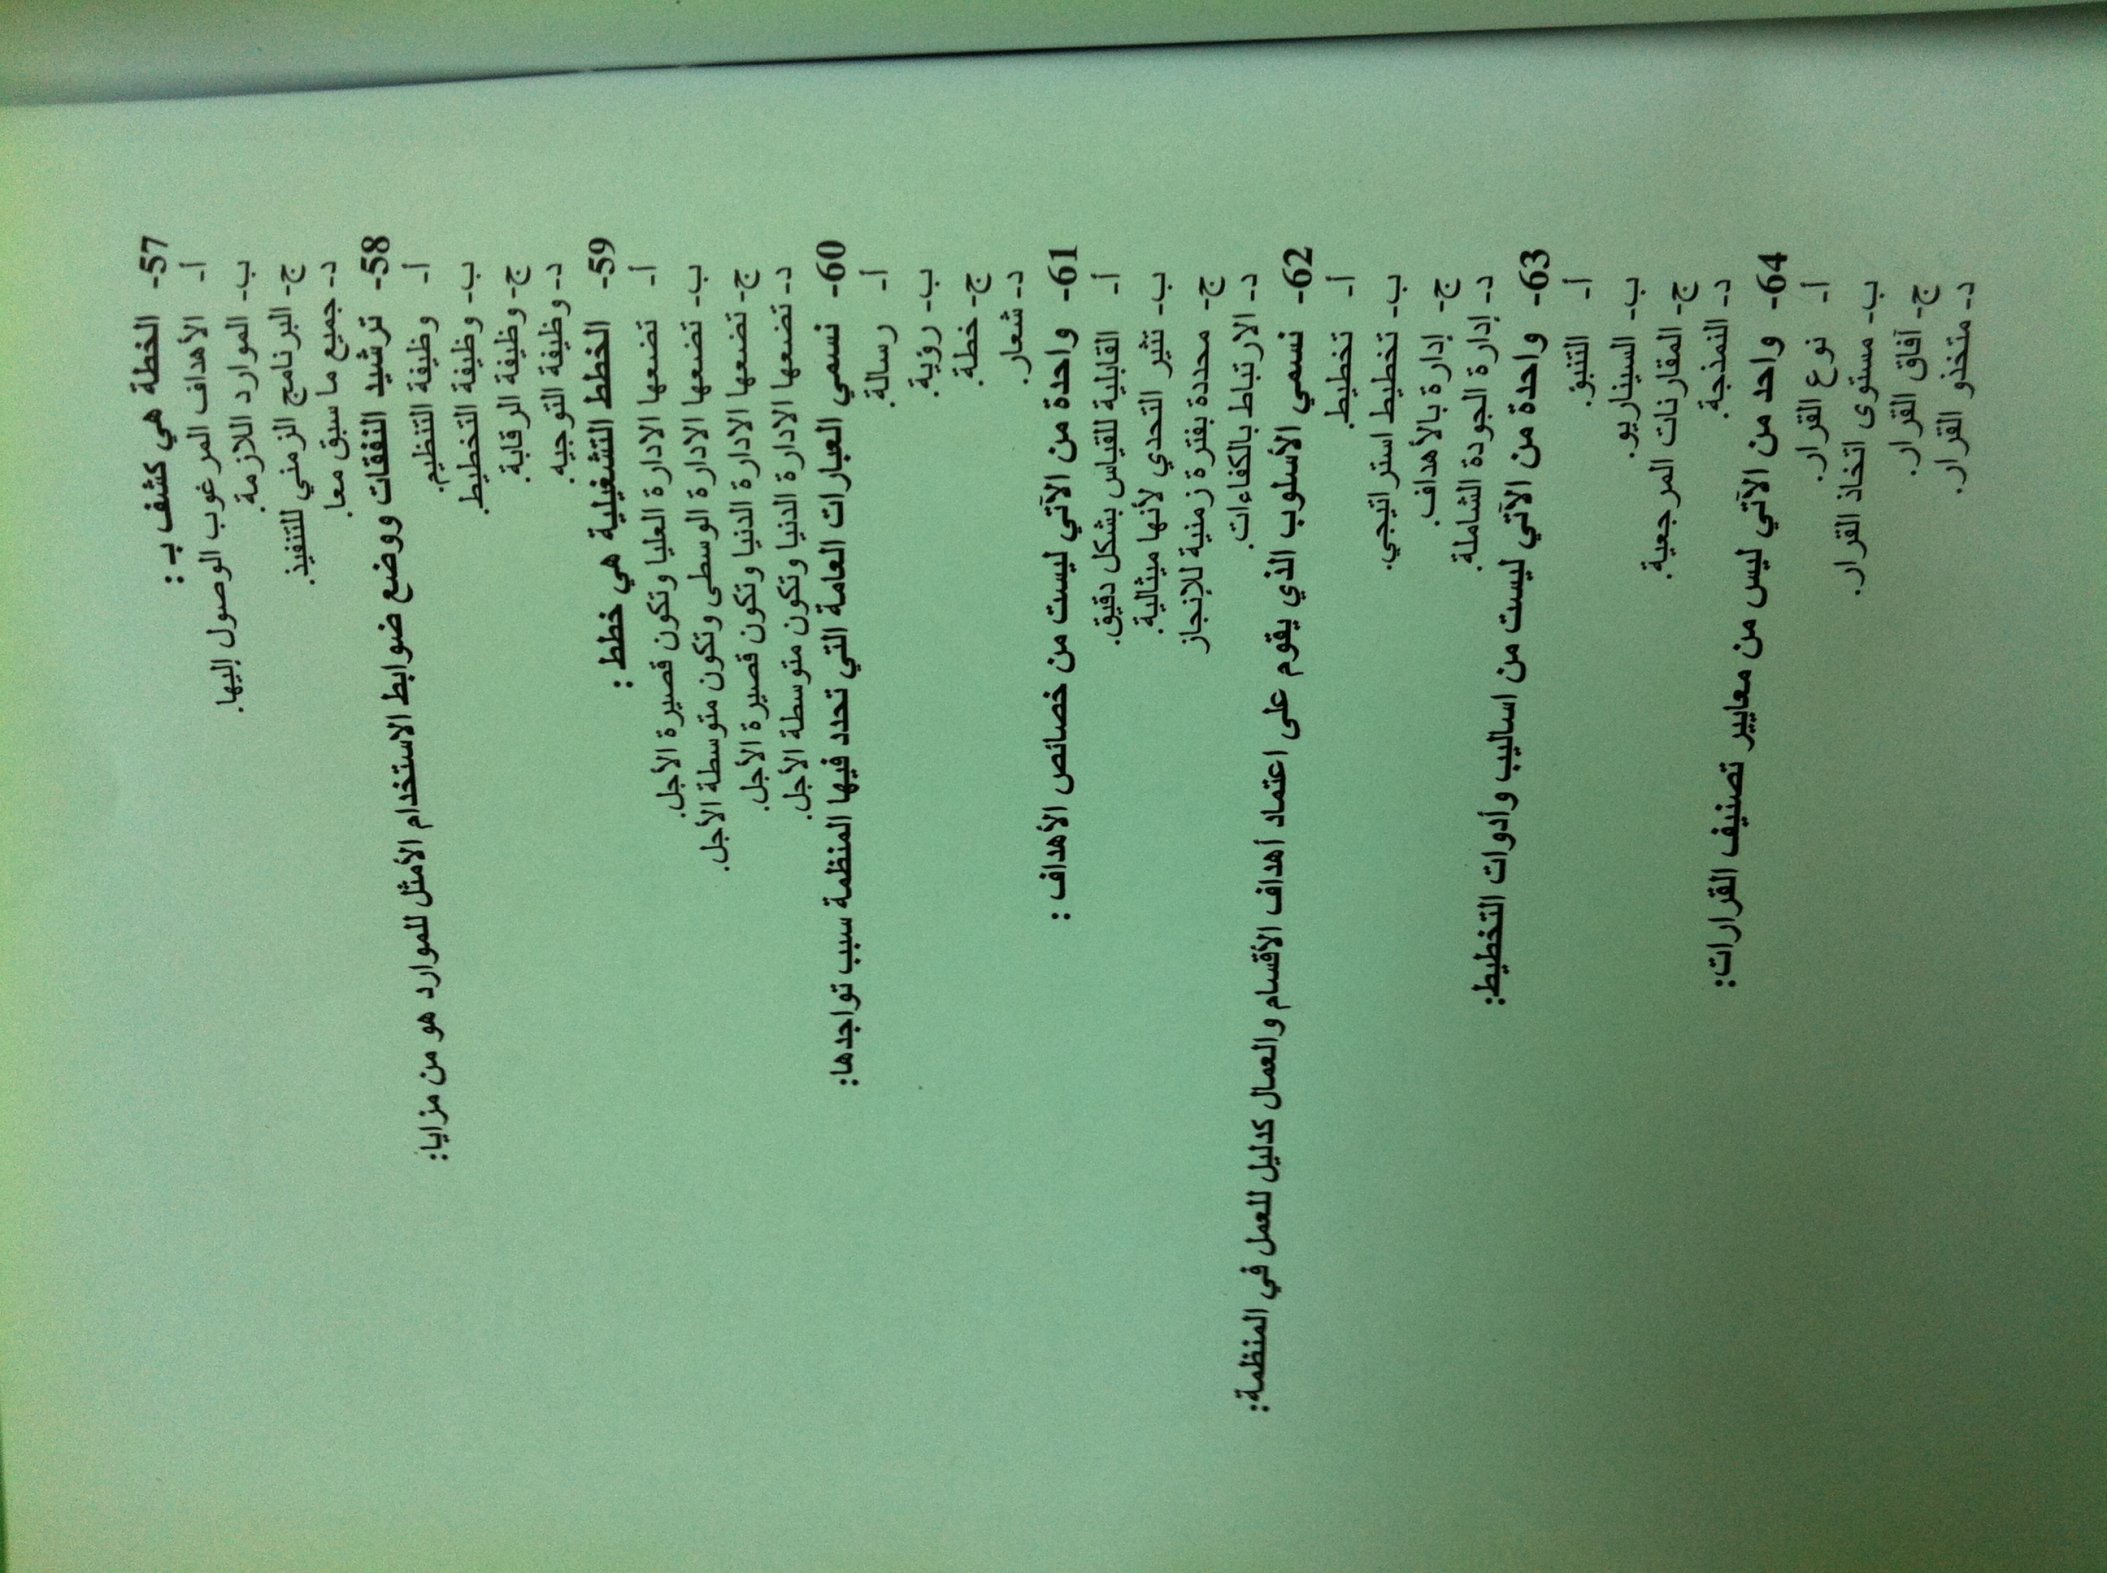 57- الخطة هي كشف بـ :
أ- الأهداف المرغوب الوصول إليها.
ب- الموارد اللازمة.
ج- البرنامج الزمني للتنفيذ.
د- جميع ما سبق معا.
58- ترشيد النفقات ووضع ضوابط الاستخدام الأمثل للموارد هو من مزايا:
أ- وظيفة التنظيم.
ب- وظيفة التخطيط.
ج- وظيفة الرقابة.
د- وظيفة التوجيه.
59- الخطط التشغيلية هي خطط :
أ- تضعها الادارة العليا وتكون قصيرة الأجل.
ب- تضعها الادارة الوسطى وتكون متوسطة الأجل.
ج- تضعها الادارة الدنيا وتكون قصيرة الأجل.
د- تضعها الادارة الدنيا وتكون متوسطة الأجل.
60- نسمي العبارات العامة التي تحدد فيها المنظمة سبب تواجدها:
أ- رسالة.
ب- رؤية.
ج- خطة.
د- شعار.
61- واحدة من الآتي ليست من خصائص الأهداف :
أ- القابلية للقياس بشكل دقيق.
ب- تثير التحدي لأنها ميثالية.
ج- محددة بفترة زمنية للإنجاز
د- الارتباط بالكفاءات.
62- نسمي الأسلوب الذي يقوم على اعتماد أهداف الأقسام والعمال كدليل للعمل في المنظمة:
أ- تخطيط.
ب- تخطيط استراتيجي.
ج- إدارة بالأهداف.
د- إدارة الجودة الشاملة.
63- واحدة من الآتي ليست من اساليب وأدوات التخطيط:
أ- التنبؤ.
ب- السيناريو.
ج- المقارنات المرجعية.
د- النمذجة.
64- واحد من الآتي ليس من معايير تصنيف القرارات:
أ- نوع القرار.
ب- مستوى اتخاذ القرار.
ج- آفاق القرار.
د- متخذو القرار.